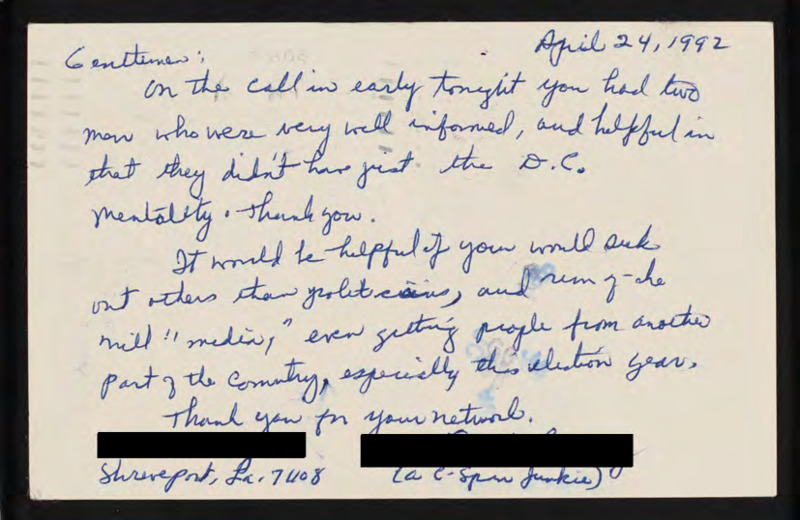 April 24, 1992
Gentlemen:
On the call in early tonight you had two
men who were very well informed, and helpful in
that they didn't have just the D.C.
mentality. Thank you.
It would be helpful if your would seek
out others than politicians, and run-of-the
mill "media," even getting people from another
part of the country, especially this election year.
Thank you for your network.
Shreveport, La. 71108
(a C-Span Junkie)